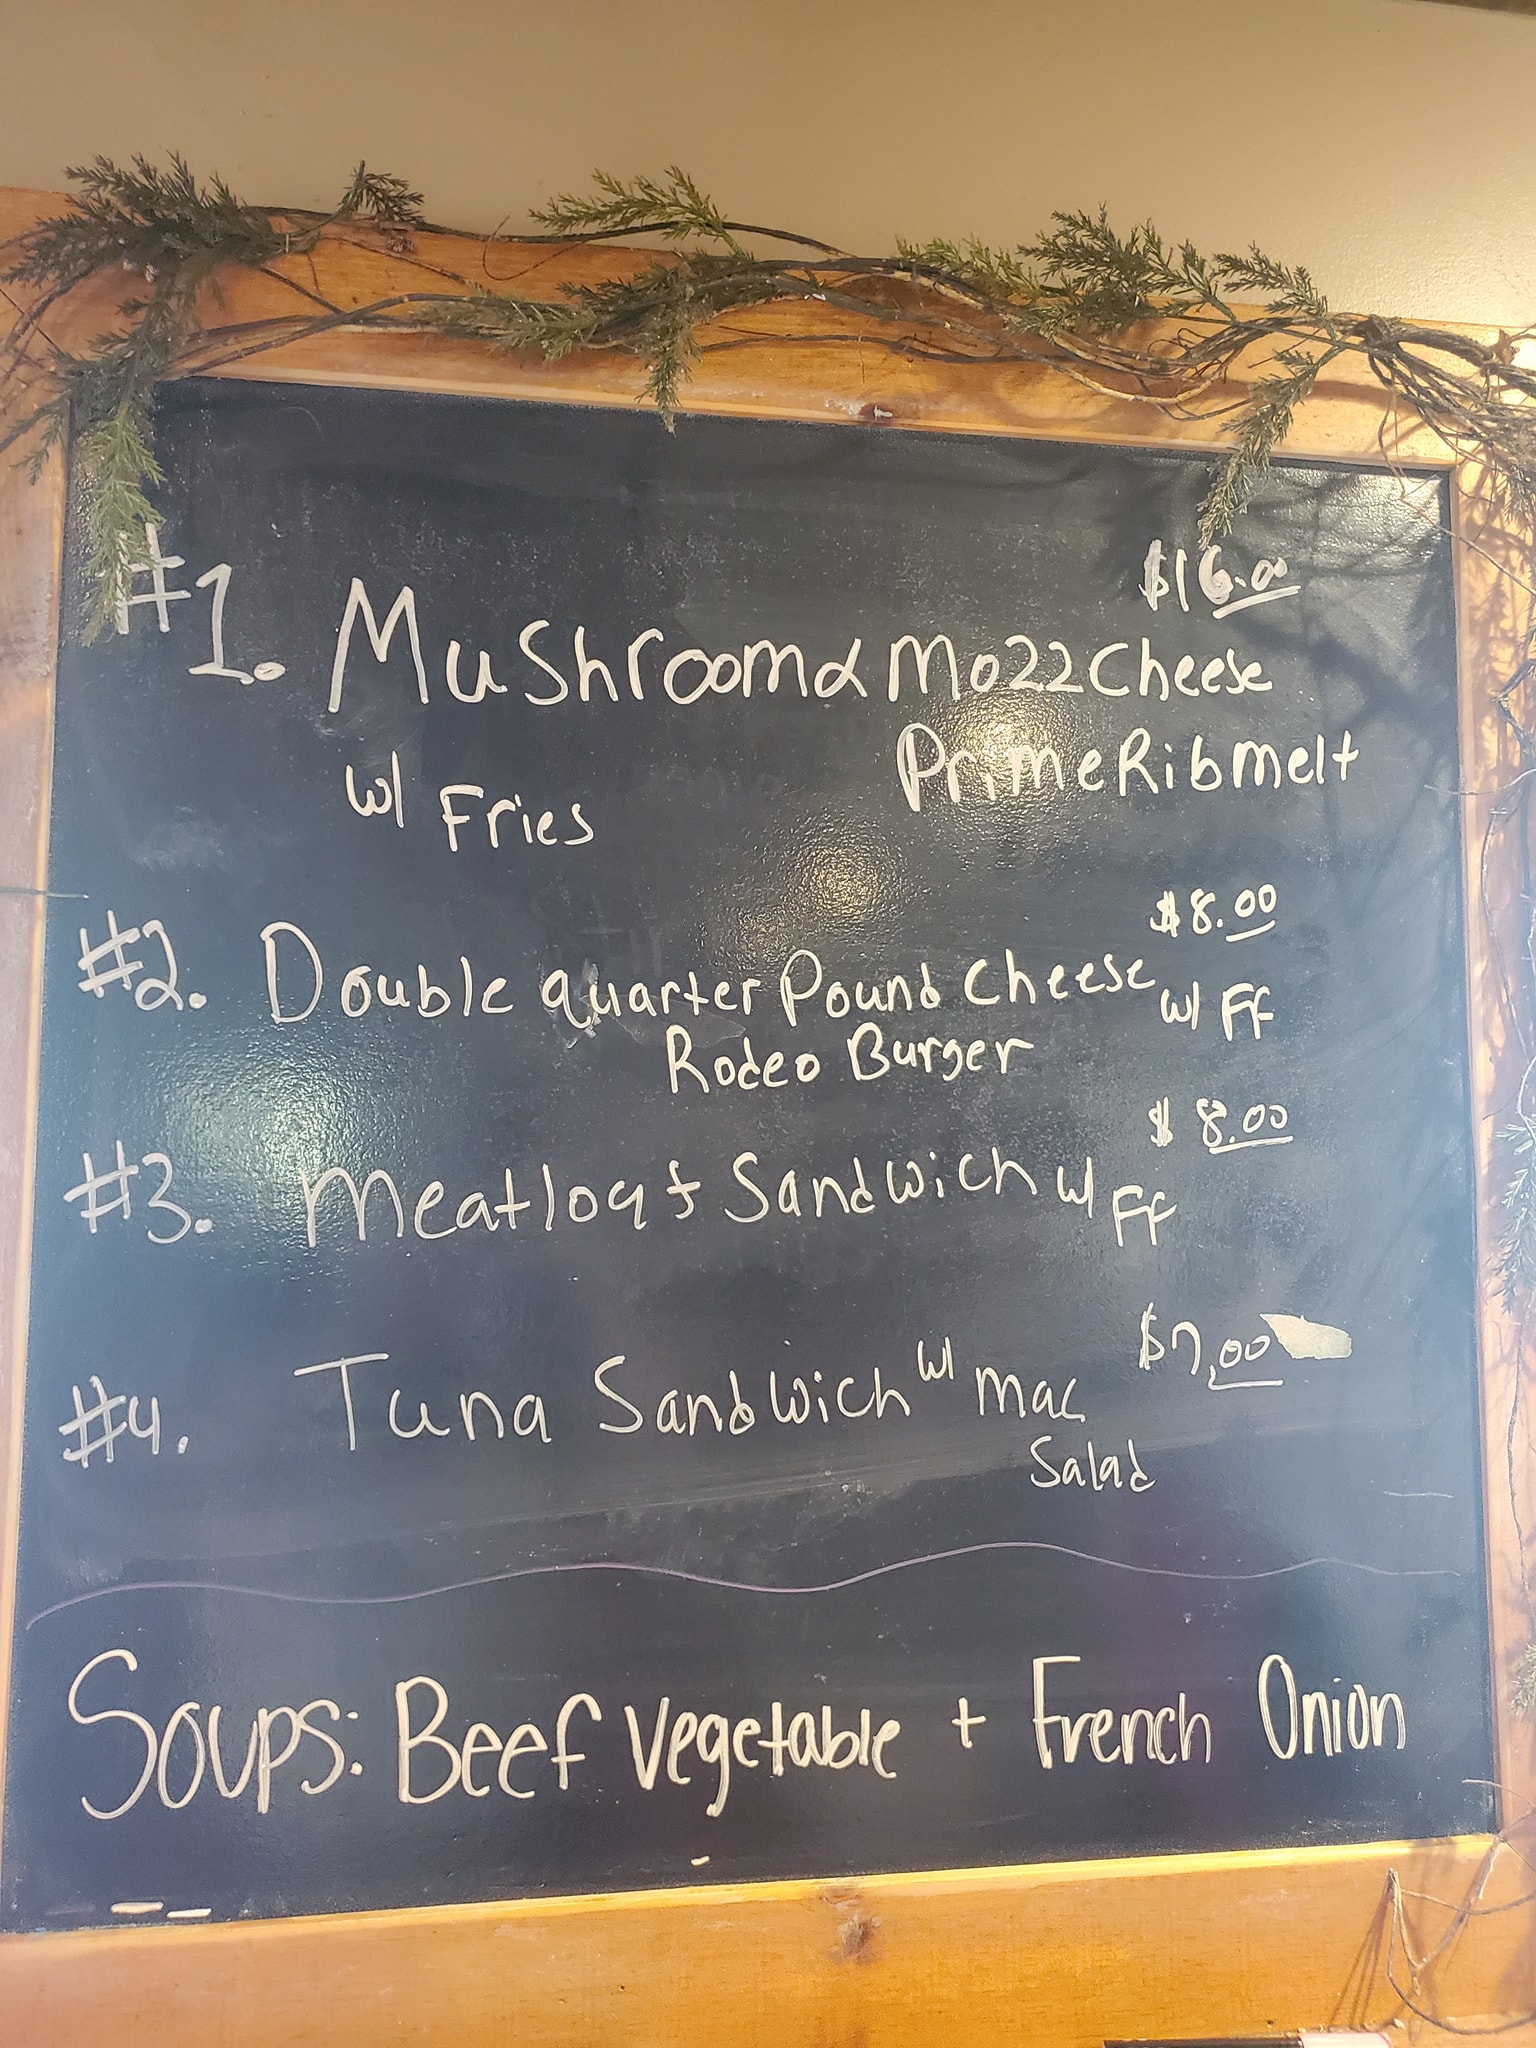 $16.00
#1. Mushroom & Mozz Cheese
Prime Rib melt
w/ Fries
$8.00
#2. Double quarter Pound Cheese w/ FF
Rodeo Burger
$8.00
#3. Meatloaf Sandwich w/ FF
$7.00
#4. Tuna Sandwich w/ Mac
Salad
Soups: Beef Vegetable + French Onion